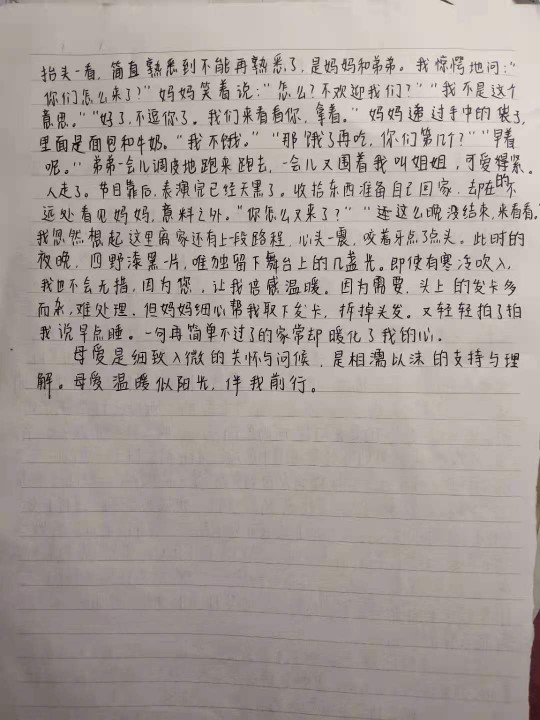 抬头一看，简直熟悉到不能再熟悉了，是妈妈和弟弟。我惊愕地问：“
你们怎么来了？”妈妈笑着说：“怎么？不欢迎我们？”“我不是这个
意思。”“好了，不逗你了。我们来看看你，拿着。”妈妈递过手中的袋子，
里面是面包和牛奶。“我不饿。”“那饿了再吃，你们第几个？”“早着
呢。”弟弟一会儿调皮地跑来跑去，一会儿又围着我叫姐姐，可爱得紧。
人走了。节目靠后，表演完已经天黑了。收拾东西准备自己回家，却在的不
远处看见妈妈，意料之外。“你怎么又来了？”“这么晚没结束，来看看。”
我忽然想起这里离家还有上一段路程，心头一震，咬着牙点了点头。此时的
夜晚，四野漆黑一片，唯独留下舞台上的几盏光。即使有寒冷吹入，
我也不会无措，因为您，让我倍感温暖。因为需要，头上的发卡多
而杂，难处理，但妈妈细心帮我取下发卡，拆掉头发。又轻轻拍了拍
我说早点睡。一句再简单不过了的家常却暖化了我的心。
母爱是细致入微的关怀与问候，是相濡以沫的支持与理
解。母爱温暖似阳光，伴我前行。